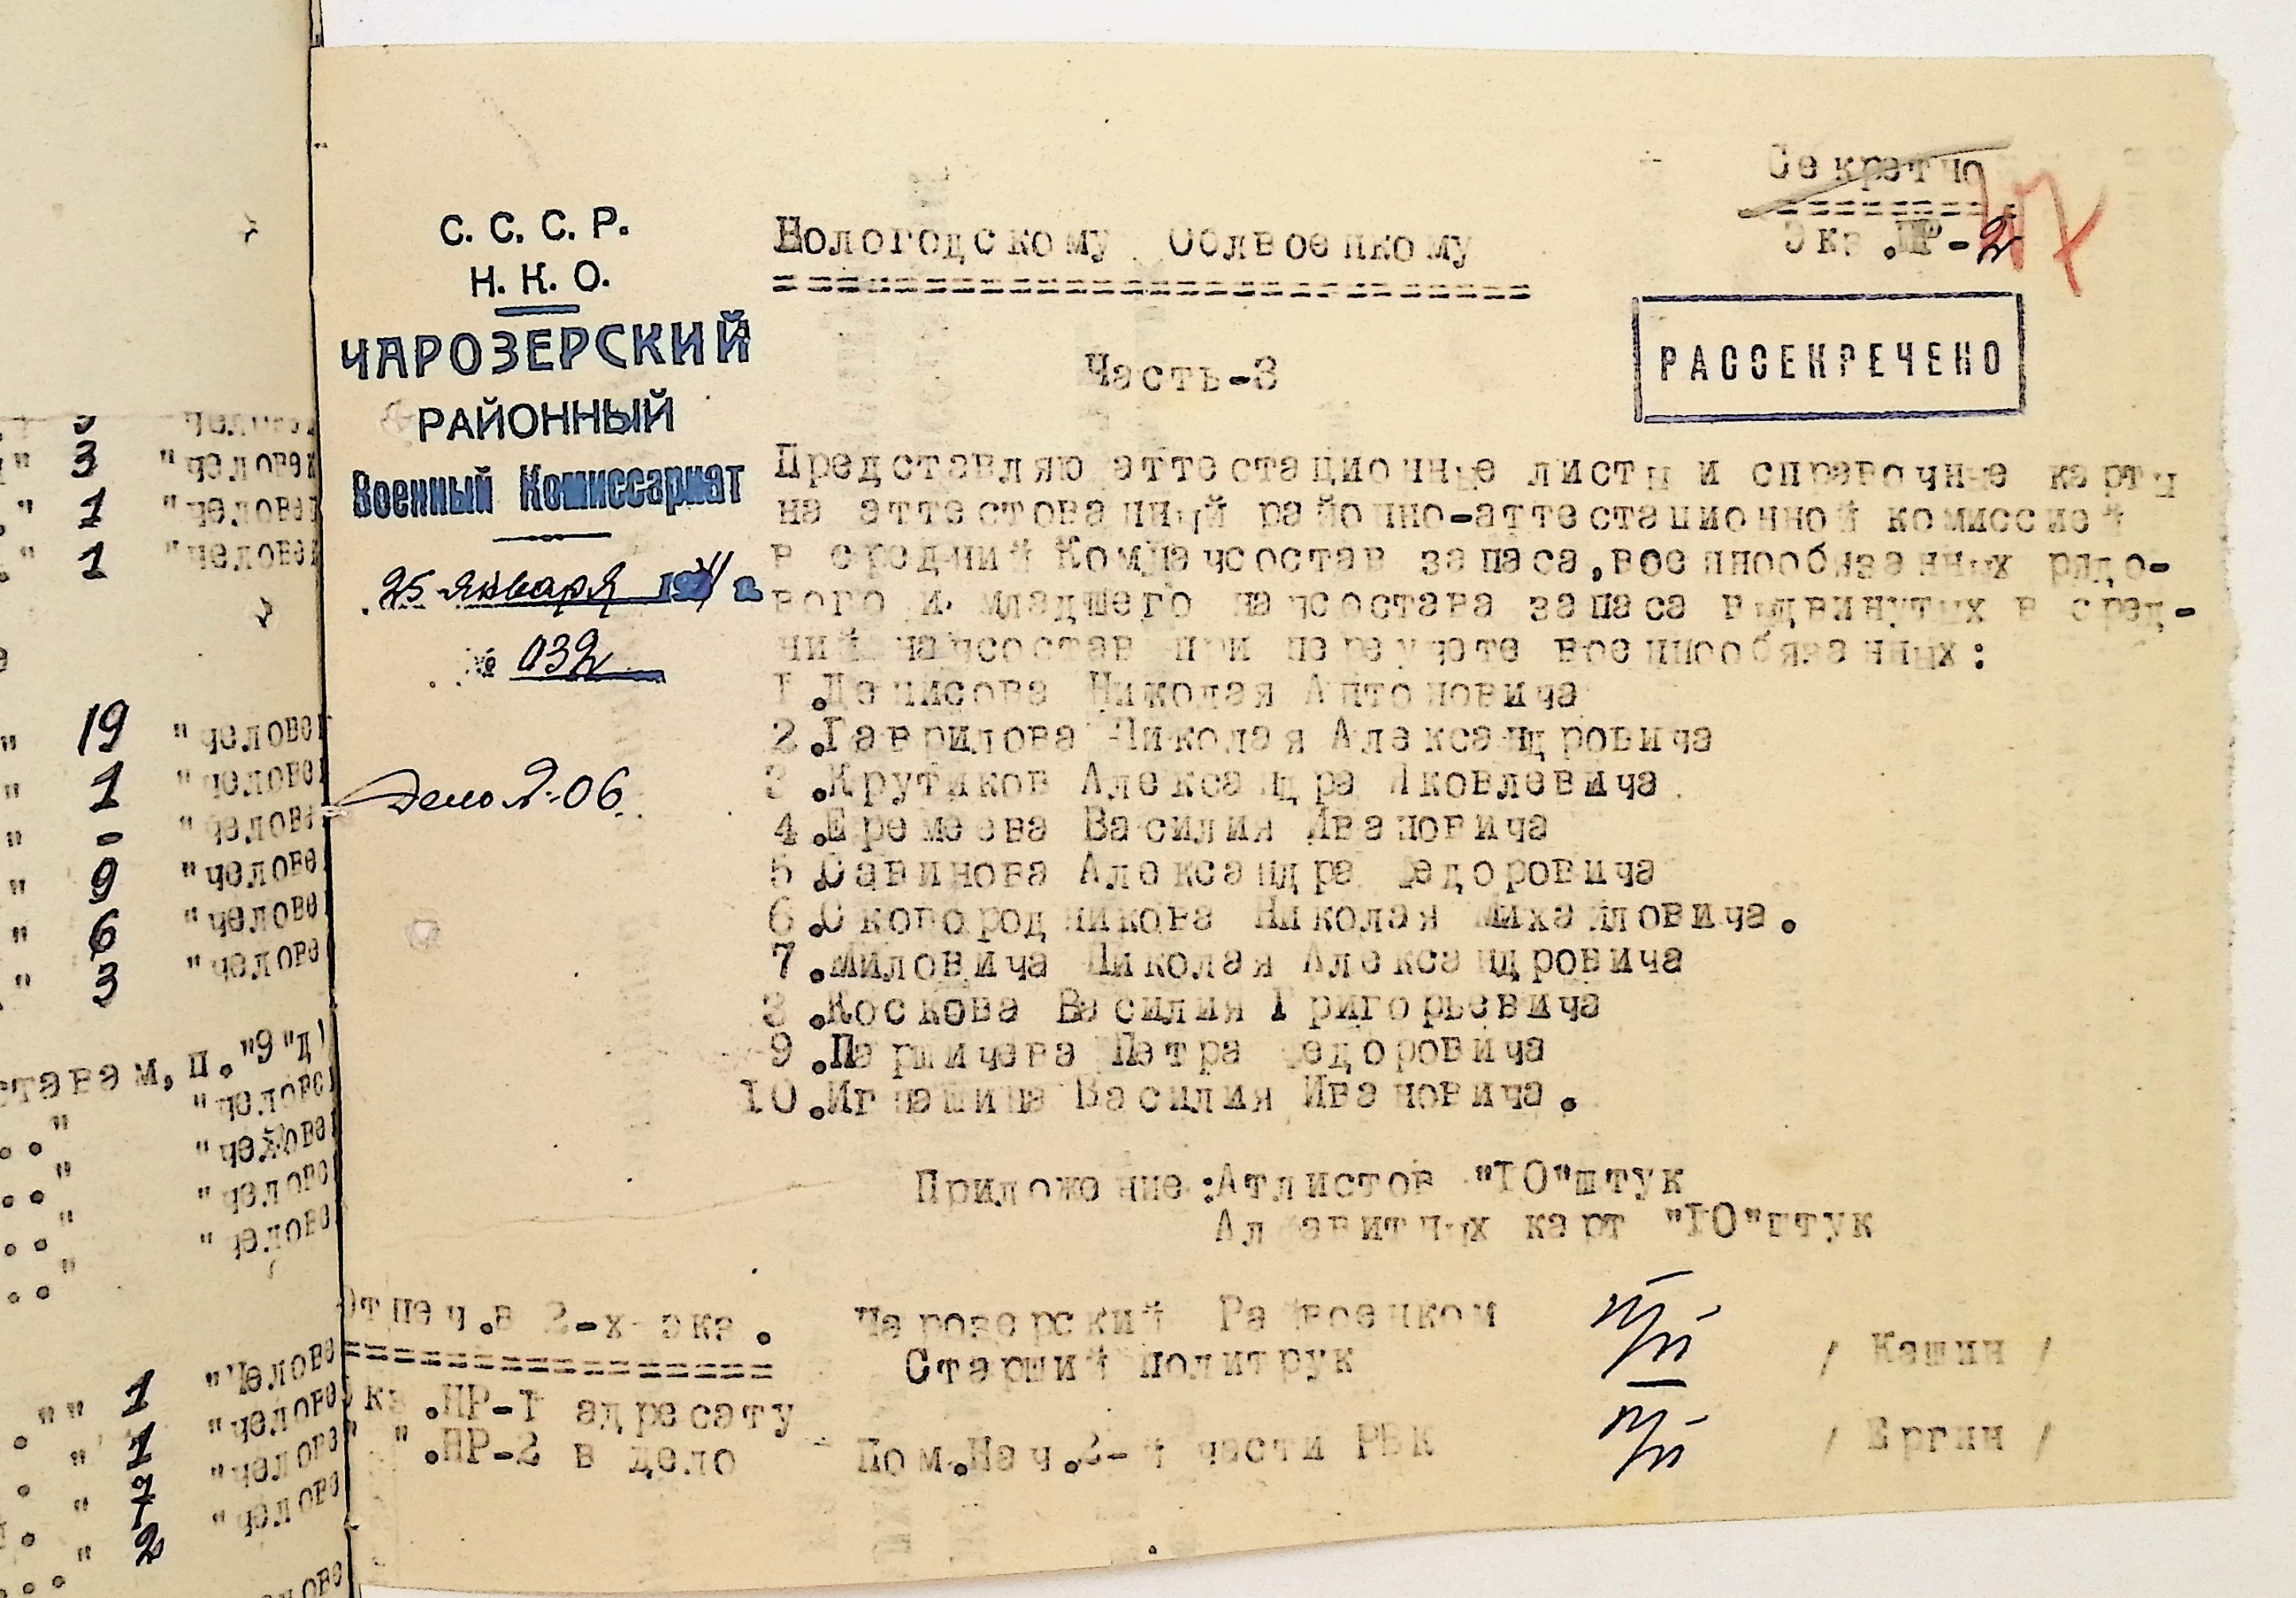 Секретно
Экз.НР-2
47
С. С. С. Р.
Н. К. О.
ЧАРОЗЕРСКИЙ
РАЙОННЫЙ
Военный Комиссариат
25 января 1941 г.
№ 032
Дело 2-06
Вологодскому Облвоенкому
Часть-3
РАССЕКРЕЧЕНО
Представляю аттестационные листы и справочные карты
на аттестованный районно-аттестационной комиссией
в средний Комначсостав запаса,военнообязанных рядо-
вого и младшего начсостава запаса выдвинутых в сред-
ний начсостав при переучете военнообязанных:
1.Денисова Николая Антоновича
2.Гаврилова Николая Александровича
3.Крутиков Александра Яковлевича
4.Еремеева Василия Ивановича
5.Савинова Александра Федоровича
6.Сковородникова Николая Михайловича.
7.Миловича Николая Александровича
8.Коскова Василия Григорьевича
9.Паршичева Петра Федоровича
10.Игнашина Василия Ивановича.
Приложение:Атлистов "10"штук
Алфавитных карт "10"штук
Отпеч.в 2-х экз.
Экз.НР-1 адресату
" ".НР-2 в дело
Чарозерский Райвоенком
Старший политрук
п/п
/ Кашин /
Пом.Нач.2-й части РВК
п/п
/ Ергин /
3 "человек
" 1 "человек
" 1 "человек
" 19 "человек
" 1 "челове
" - "челове
" 9 "челове
" 6 "челове
" 3 "челове
става м, п. "9"д
"челове
"челове
"челове
"челове
" " 1 "Челове
" 1 "челове
" 7 "челове
" 2 "челове